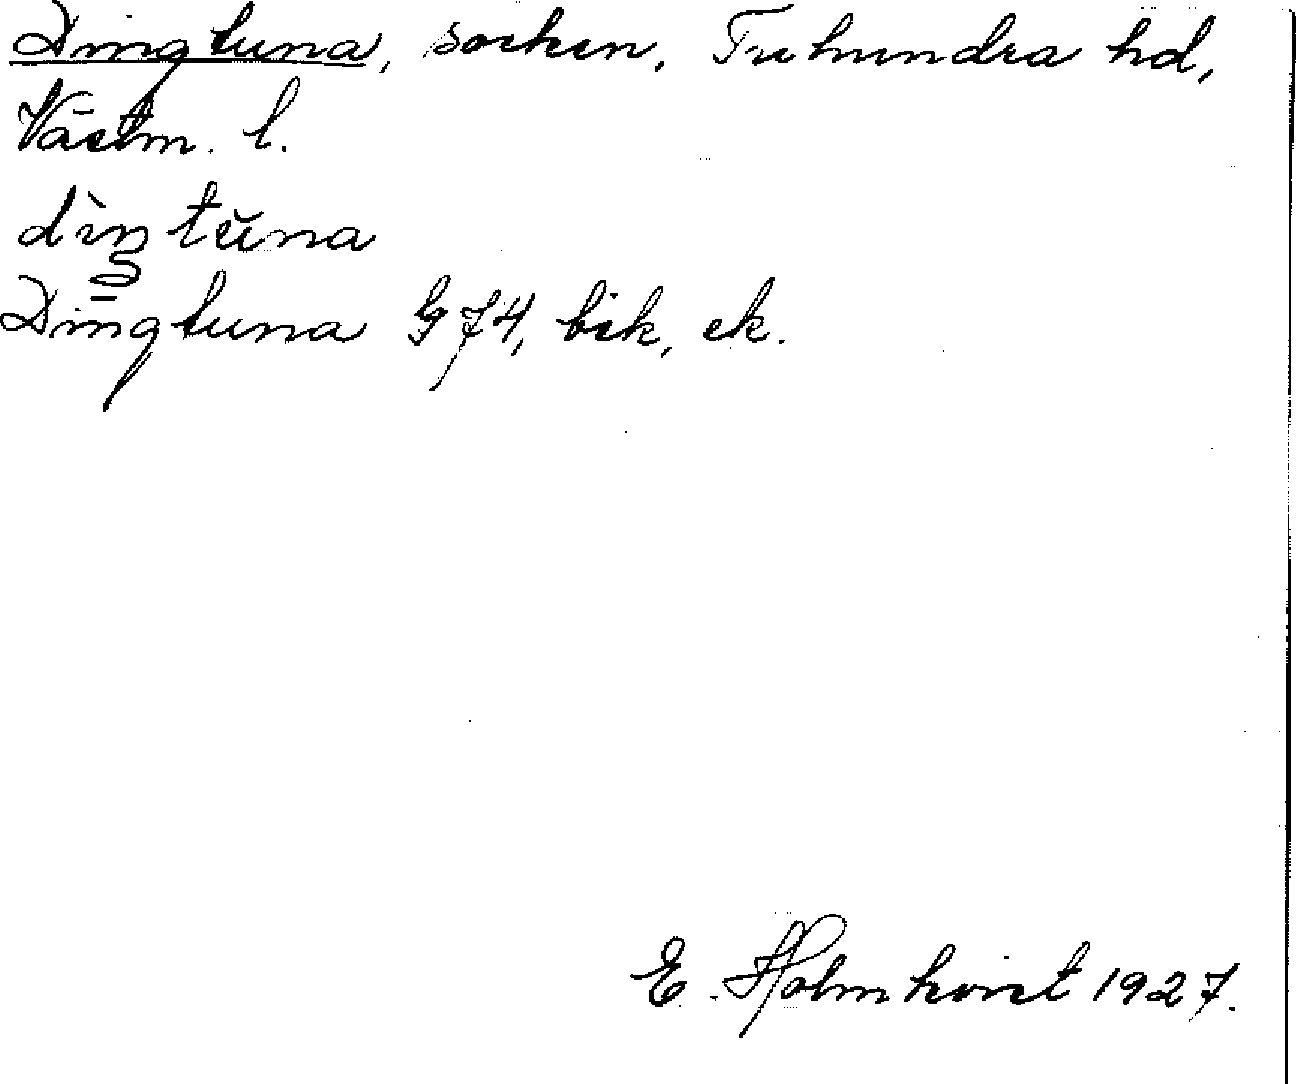 Dingtuna, socken, Tuhundra hd,
Västm. l.
dìŋtŭna
Dingtuna G 74, bik, ek.
E. Holmkvist 1927.